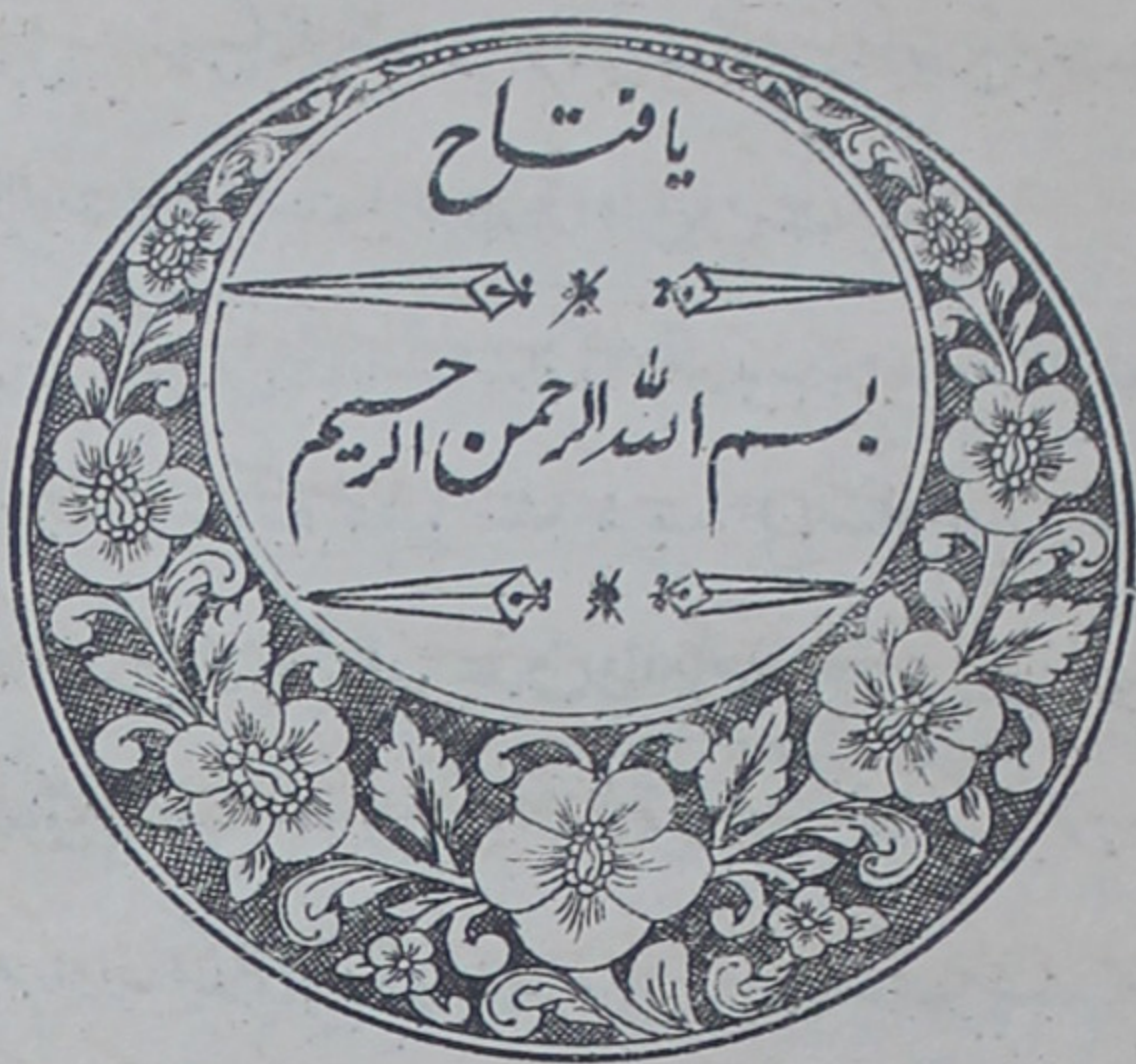 یا فتاح
بسم الله الرحمن الرحیم